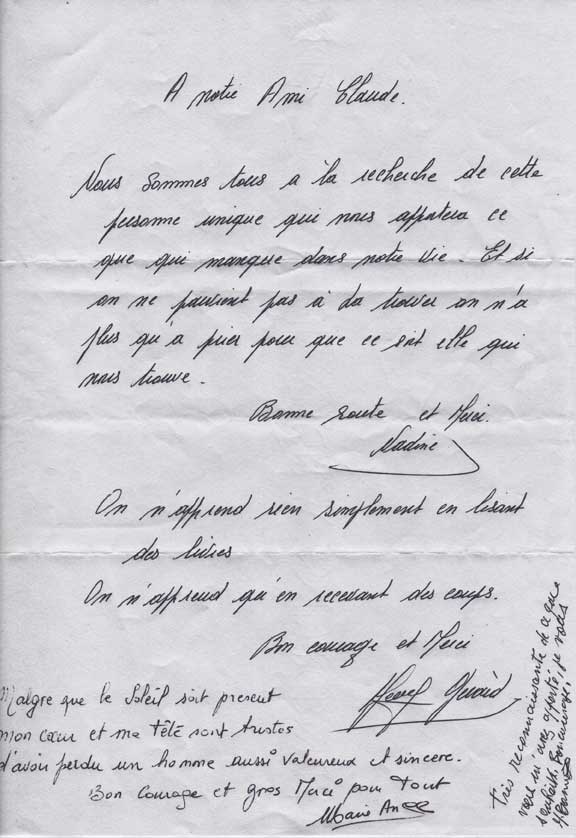 A notre Ami Claude.
Nous sommes tous a la recherche de cette
personne unique qui nous apportera ce
que qui manque dans notre vie. Et si
on ne parvient pas à la trouver on n'a
plus qu'a prier pour que ce soit elle qui
nous trouve.
Bonne route et Merci.
Nadine
On n'apprend rien simplement en lisant
des livres
On n'apprend qu'en recevant des coups.
Bon courage et Merci
Gérard
Malgre que le Soleil soit present
mon cœur et ma Tête sont tristes
d'avoir perdu un homme aussi valeureux et sincere.
Bon Courage et gros Merci pour Tout
Marie An
Très reconnaissante de ce que
vous m'avez apporté, je vous
souhaite Bon courage!